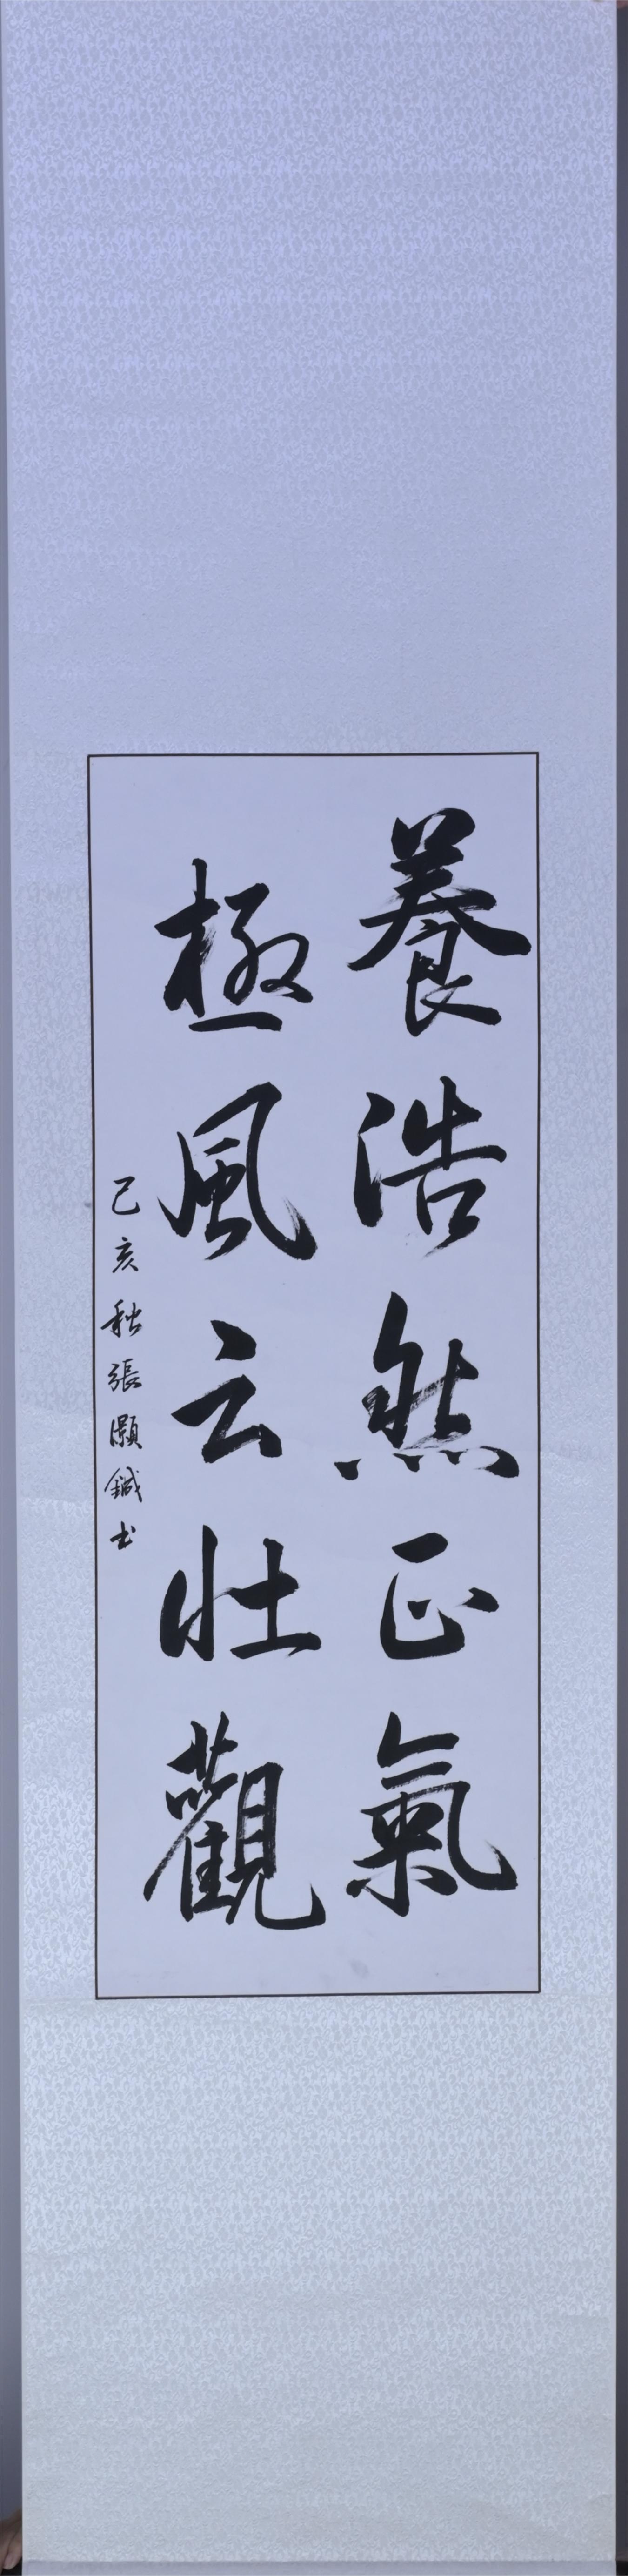 養浩然正氣
極風云壯觀
己亥秋張灝鍼书